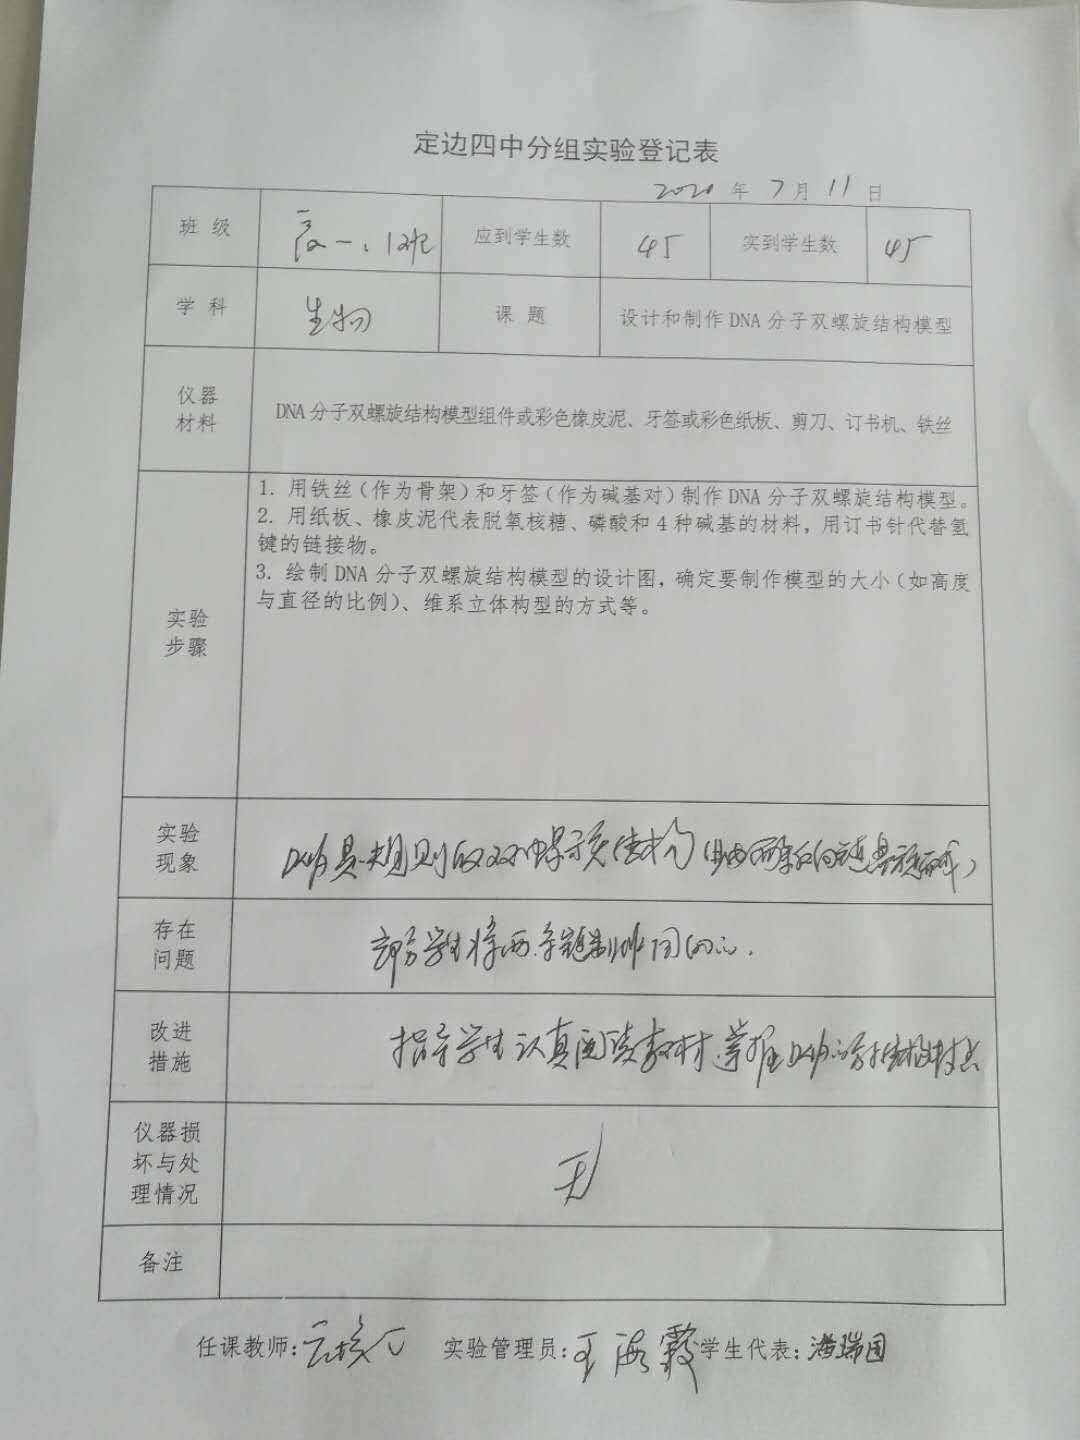 定边四中分组实验登记表
2020 年 7 月 11 日
班 级 高一、12班 应到学生数 45 实到学生数 45
学 科 生物 课 题 设计和制作 DNA 分子双螺旋结构模型
仪器
材料
DNA 分子双螺旋结构模型组件或彩色橡皮泥、牙签或彩色纸板、剪刀、订书机、铁丝
1. 用铁丝（作为骨架）和牙签（作为碱基对）制作 DNA 分子双螺旋结构模型。
2. 用纸板、橡皮泥代表脱氧核糖、磷酸和 4 种碱基的材料，用订书针代替氢
键的链接物。
3. 绘制 DNA 分子双螺旋结构模型的设计图，确定要制作模型的大小（如高度
与直径的比例）、维系立体构型的方式等。
实验
步骤
实验
现象
DNA具规则的双螺旋结构
存在
问题
部分学生将两条链制作同向的.
改进
措施
指导学生认真阅读教材,掌握DNA的结构特点
仪器损
坏与处
理情况
无
备注
任课教师: 实验管理员: 王海霞 学生代表: 潘瑞国